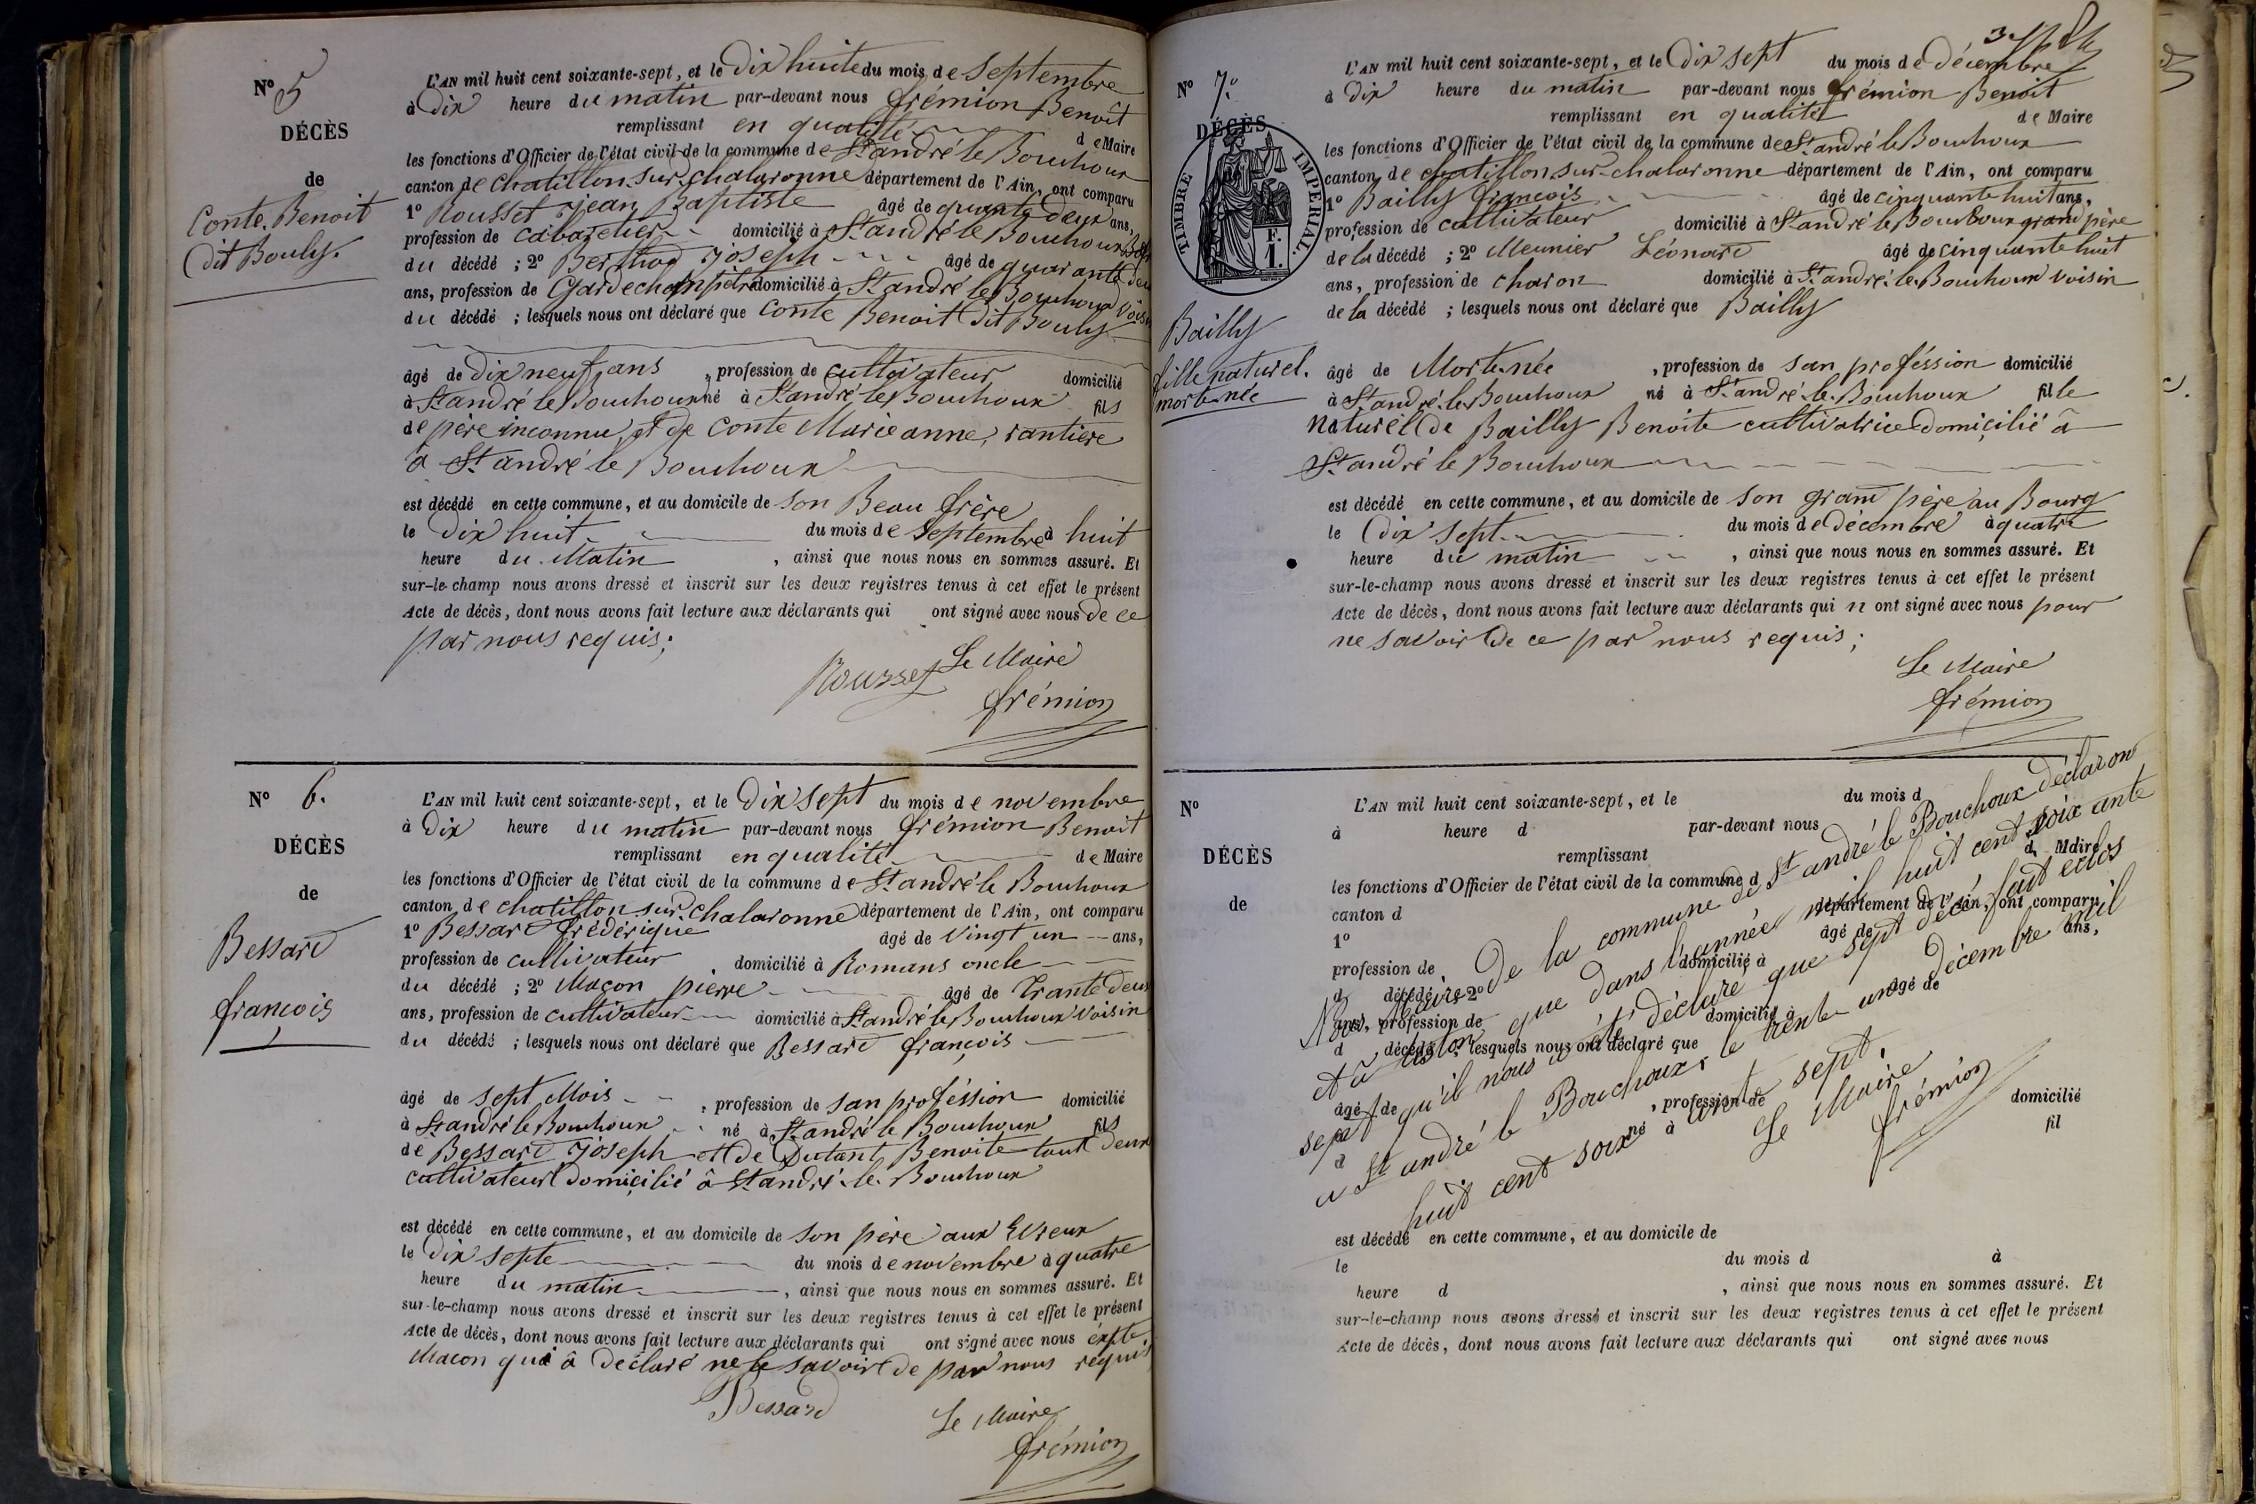 N° 5
DÉCÈS
de
Conte Benoit
dit Bouly.
L'AN mil huit cent soixante-sept, et le dix huite du mois de Septembre
à dix heure du matin par-devant nous frémion Benoit
remplissant en qualité de Maire
les fonctions d'Officier de l'état civil de la commune de St andré le Bouchoux
canton de chatillon sur chalaronne département de l'Ain, ont comparu
1° Rousset Jean Baptiste âgé de quarante deux ans,
profession de cabaretier domicilié à St andré le Bouchoux
du décédé ; 2° Berthod Joseph âgé de quarante deux
ans, profession de Garde champètre domicilié à St andré le Bouchoux voisin
du décédé ; lesquels nous ont déclaré que Conte Benoit dit Bouly
âgé de dix neuf ans , profession de cultivateur domicilié
à St andré le Bouchoux né à St andré le Bouchoux fils
de père inconnu et de Conte Marie anne, rantière
à St andré le Bouchoux
est décédé en cette commune, et au domicile de son Beau frère
le dix huit du mois de Septembre à huit
heure du Matin , ainsi que nous nous en sommes assuré. Et
sur-le-champ nous avons dressé et inscrit sur les deux registres tenus à cet effet le présent
Acte de décès, dont nous avons fait lecture aux déclarants qui ont signé avec nous de ce
par nous requis;
Rousset Le Maire
frémion
N° 6.
DÉCÈS
de
Bessard
françois
L'AN mil huit cent soixante-sept, et le dix sept du mois de novembre
à dix heure du matin par-devant nous frémion Benoit
remplissant en qualité de Maire
les fonctions d'Officier de l'état civil de la commune de St andré le Bouchoux
canton de chatillon sur chalaronne département de l'Ain, ont comparu
1° Bessard frédérique âgé de vingt un ans,
profession de cultivateur domicilié à Romans oncle
du décédé ; 2° Maçon pierre âgé de trante deux
ans, profession de cultivateur domicilié à St andré le Bouchoux voisin
du décédé ; lesquels nous ont déclaré que Bessard françois
âgé de sept Mois , profession de san proféssion domicilié
à St andré le Bouchoux né à St andré le Bouchoux fils
de Bessard Joseph et de Dutant Benoite tout deux
cultivateur domicilié à St andré le Bouchoux
est décédé en cette commune, et au domicile de son père aux
le dix septe du mois de novembre à quatre
heure du matin , ainsi que nous nous en sommes assuré. Et
sur-le-champ nous avons dressé et inscrit sur les deux registres tenus à cet effet le présent
Acte de décès, dont nous avons fait lecture aux déclarants qui ont signé avec nous
Macon qui à déclaré ne le savoir de par nous requis
Bessard Le Maire
frémion
N° 7.
DÉCÈS
TIMBRE IMPÉRIAL.
Bailly
fille naturel.
mort-née
L'AN mil huit cent soixante-sept, et le dix sept du mois de décembre
à dix heure du matin par-devant nous frémion Benoit
remplissant en qualité de Maire
les fonctions d'Officier de l'état civil de la commune de St andré le Bouchoux
canton de chatillon-sur-chalaronne département de l'Ain, ont comparu
1° Bailly françois âgé de cinquante huit ans,
profession de cultivateur domicilié à St andré le Bouchoux grand père
de la décédé ; 2° Meunier Léonard âgé de cinquante huit
ans, profession de charon domicilié à St andré le Bouchoux voisin
de la décédé ; lesquels nous ont déclaré que Bailly
âgé de Mort-née , profession de san proféssion domicilié
à St andré le Bouchoux né à St andré le Bouchoux fille
naturel de Bailly Benoite cultivatrice domicilié à
St andré le Bouchoux
est décédé en cette commune, et au domicile de son grand père au Bourg
le dix sept du mois de décembre à quatre
heure du matin , ainsi que nous nous en sommes assuré. Et
sur-le-champ nous avons dressé et inscrit sur les deux registres tenus à cet effet le présent
Acte de décès, dont nous avons fait lecture aux déclarants qui n ont signé avec nous pour
ne savoir de ce par nous requis;
Le Maire
frémion
N°
DÉCÈS
de
L'AN mil huit cent soixante-sept, et le du mois d
à heure d par-devant nous
remplissant d Maire
les fonctions d'Officier de l'état civil de la commune d
canton d département de l'Ain, ont comparu
1° âgé de ans,
profession de domicilié à
d décédé ; 2° âgé de
ans, profession de domicilié à
d décédé ; lesquels nous ont déclaré que
âgé de , profession de domicilié
à né à fil
Nous Maire de la commune de St andré le Bouchoux déclaron
que dans l'année mil huit cent soix ante
sept qu'il nous a été déclaré que sept décé, fait et clos
a St andré le Bouchoux, le trente un décembre mil
huit cent soixante sept.
Le Maire
frémion
est décédé en cette commune, et au domicile de
le du mois d à
heure d , ainsi que nous nous en sommes assuré. Et
sur-le-champ nous avons dressé et inscrit sur les deux registres tenus à cet effet le présent
Acte de décès, dont nous avons fait lecture aux déclarants qui ont signé avec nous